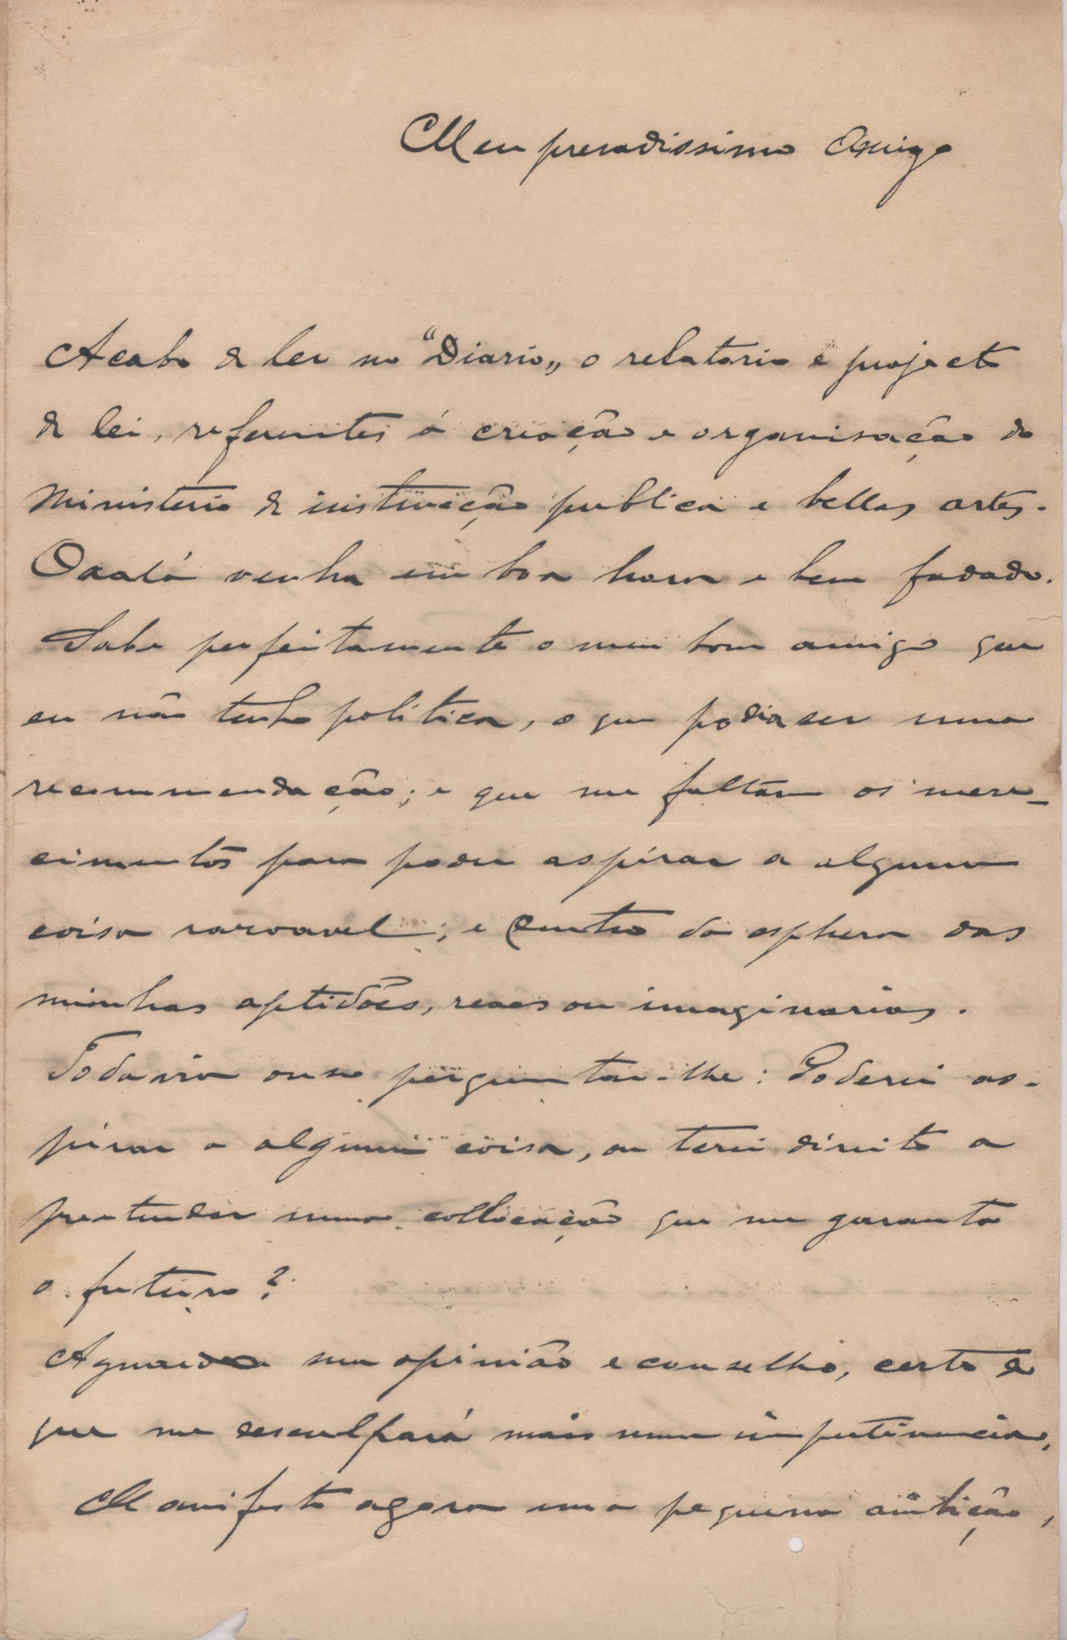 Meu presadissimo Amigo
Acabo de ler no "Diario„ o relatorio e projecto
de lei, referentes á criação e organisação do
Ministerio de instrucção publica e bellas artes.
Oxalá venha em boa hora e bem fadado.
Sabe perfeitamente o meu bom amigo que
eu não tenho politica, o que podia ser uma
recommendação; e que me faltam os mere-
cimentos para poder aspirar a alguma
coisa rasoavel; e dentro da esphera das
minhas aptidões, reaes ou imaginarias.
Todavia ouso perguntar-lhe: Poderei as-
pirar a alguma coisa, ou terei direito a
pretender uma collocação que me garanta
o futuro?
Aguardo sua opinião e conselho, certo de
que me desculpará mais uma impertinencia.
Manifesto agora uma pequena ambição,